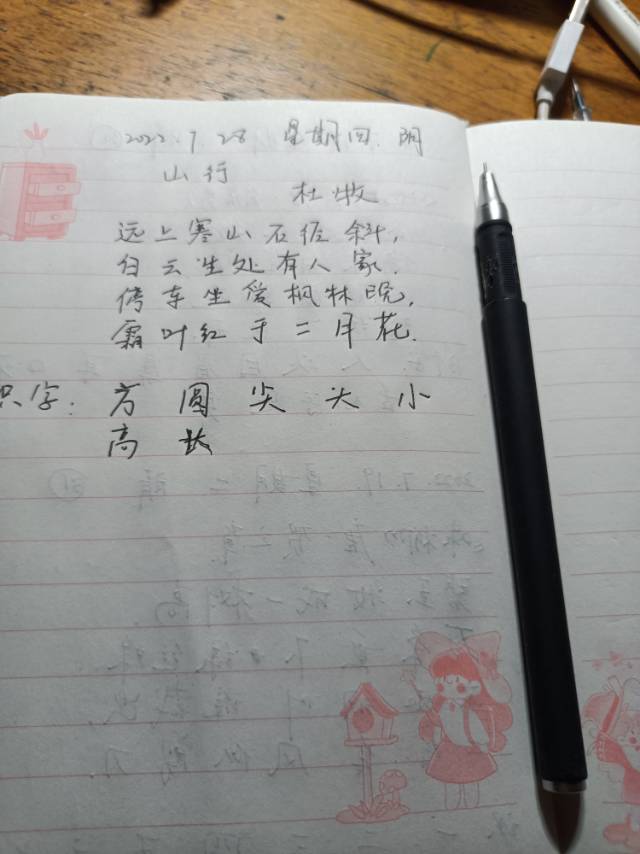 2022.7.28 星期四.阴
山行
杜牧
远上寒山石径斜,
白云生处有人家.
停车坐爱枫林晚,
霜叶红于二月花.
识字: 方 圆 尖 大 小
高 长